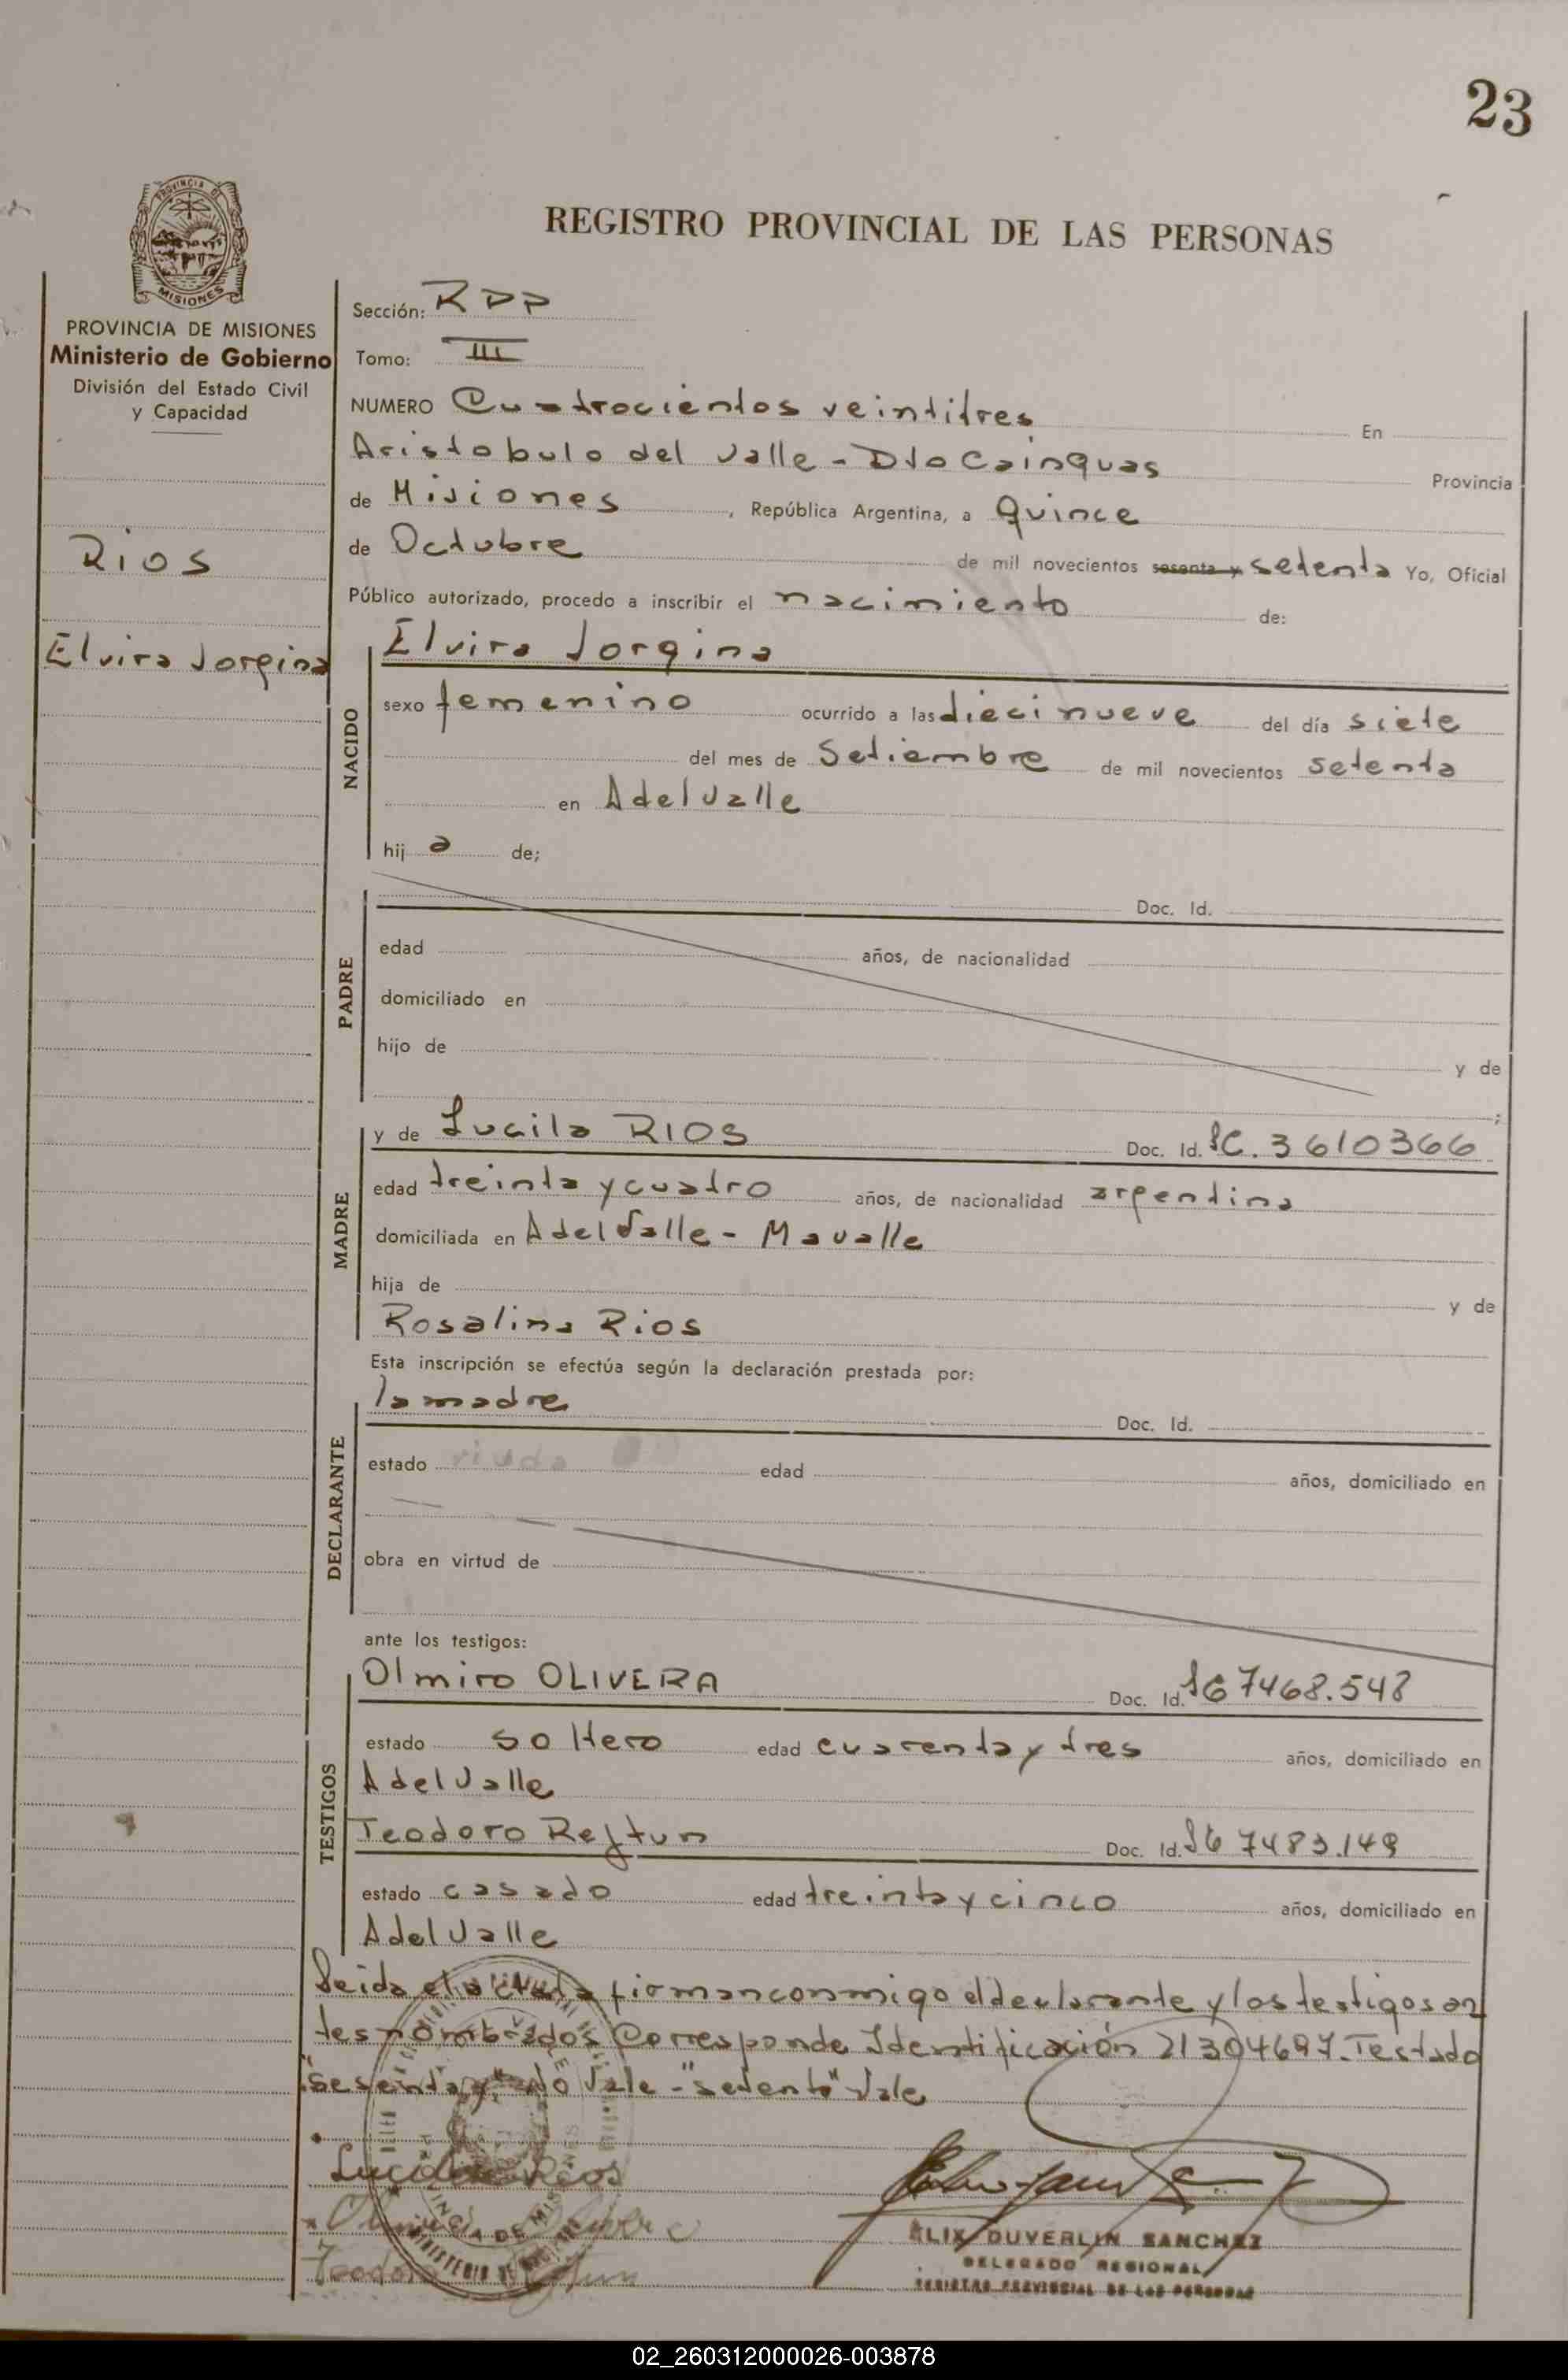 23
PROVINCIA DE
MISIONES
REGISTRO PROVINCIAL DE LAS PERSONAS
PROVINCIA DE MISIONES
Ministerio de Gobierno
División del Estado Civil
y Capacidad
Rios
Elvira Jorgina
Sección: RDP
Tomo: III
NUMERO Cuatrocientos veintitres En
Aristobulo del Valle - Dto Cainguas Provincia
de Misiones, República Argentina, a Quince
de Octubre de mil novecientos sesenta y setenta Yo, Oficial
Público autorizado, procedo a inscribir el nacimiento de:
NACIDO
Elvira Jorgina
sexo femenino ocurrido a las diecinueve del día siete
del mes de Setiembre de mil novecientos setenta
en AdelValle
hij a de;
PADRE
Doc. Id.
edad años, de nacionalidad
domiciliado en
hijo de y de
;
MADRE
y de Lucila RIOS Doc. Id. LC. 3610366
edad treinta y cuatro años, de nacionalidad argentina
domiciliada en AdelValle - Mavalle
hija de y de
Rosalina Rios
Esta inscripción se efectúa según la declaración prestada por:
DECLARANTE
la madre Doc. Id.
estado viuda edad años, domiciliado en
obra en virtud de
ante los testigos:
TESTIGOS
Olmiro OLIVERA Doc. Id. 7468.548
estado soltero edad cuarenta y tres años, domiciliado en
AdelValle
Teodoro Doc. Id. 7483.149
estado casado edad treinta y cinco años, domiciliado en
AdelValle
Leida el acta la firman conmigo el declarante y los testigos an
tes nombrados Corresponde Identificación 21304697. Testado
"sesenta y" no Vale - "setenta" Vale
Lucila Rios
Teodoro
ELIX DUVERLIN SANCHEZ
DELEGADO REGIONAL
REGISTRO PROVINCIAL DE LAS PERSONAS
02_260312000026-003878